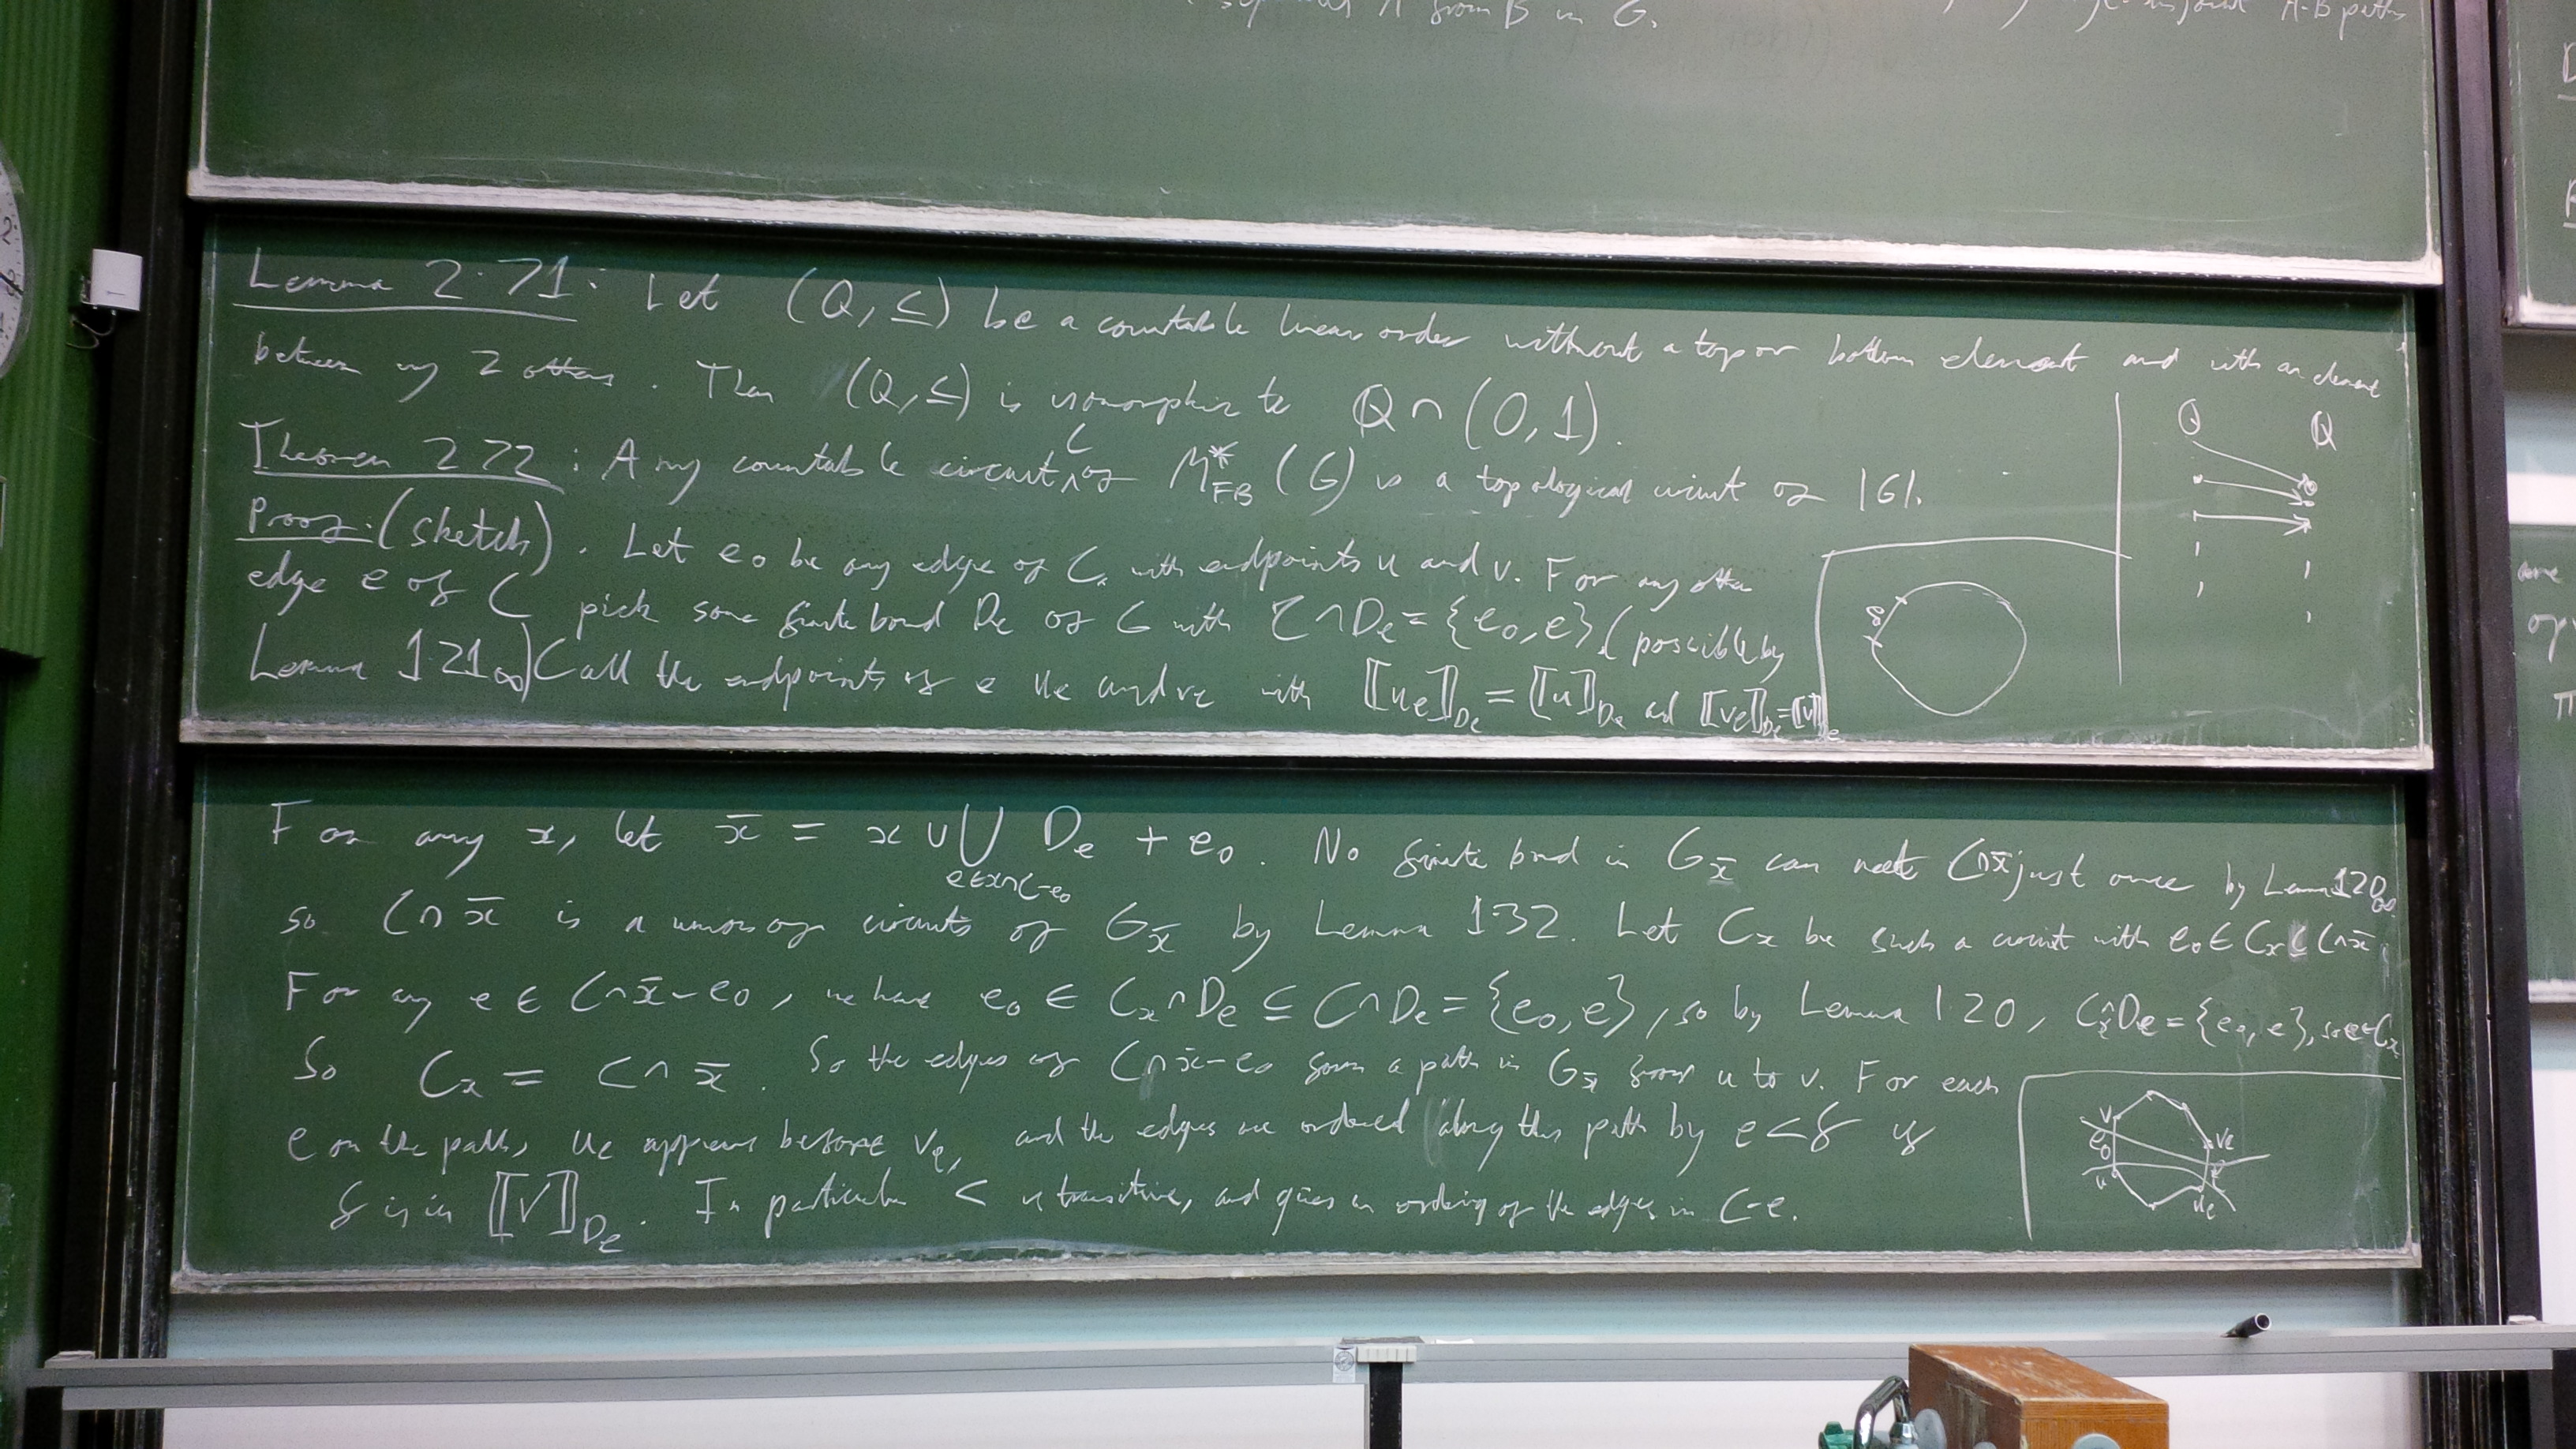 A from B in G. A-B paths
Lemma 2.71: Let (Q, ≤) be a countable linear order without a top or bottom element and with an element
between any 2 others. Then (Q, ≤) is isomorphic to ℚ ∩ (0, 1).
Theorem 2.72: Any countable circuit C of M*_FB (G) is a topological circuit of |G|.
Proof: (sketch). Let e₀ be any edge of C, with endpoints u and v. For any other
edge e of C pick some finite bond D_e of G with C ∩ D_e = {e₀, e} (possible by
Lemma 1.21_∞) Call the endpoints of e u_e and v_e with ⟦u_e⟧_{D_e} = ⟦u⟧_{D_e} and ⟦v_e⟧_{D_e} = ⟦v⟧_{D_e}
Q ℚ
For any x, let x̄ = x ∪ ⋃_{e∈x∩C-e₀} D_e + e₀. No finite bond in G_x̄ can meet C∩x̄ just once by Lemma 1.20_∞
so C ∩ x̄ is a union of circuits of G_x̄ by Lemma 1.32. Let C_x be such a circuit with e₀ ∈ C_x ⊆ C∩x̄
For any e ∈ C∩x̄ - e₀, we have e₀ ∈ C_x ∩ D_e ⊆ C ∩ D_e = {e₀, e}, so by Lemma 1.20, C_x ∩ D_e = {e₀, e}, so e∈C_x
So C_x = C ∩ x̄. So the edges of C∩x̄-e₀ form a path in G_x̄ from u to v. For each
e on the path, u_e appears before v_e, and the edges are ordered along this path by e < f if
f is in ⟦v⟧_{D_e}. In particular < is transitive, and gives an ordering of the edges in C-e.
v e₀ u v_e e u_e